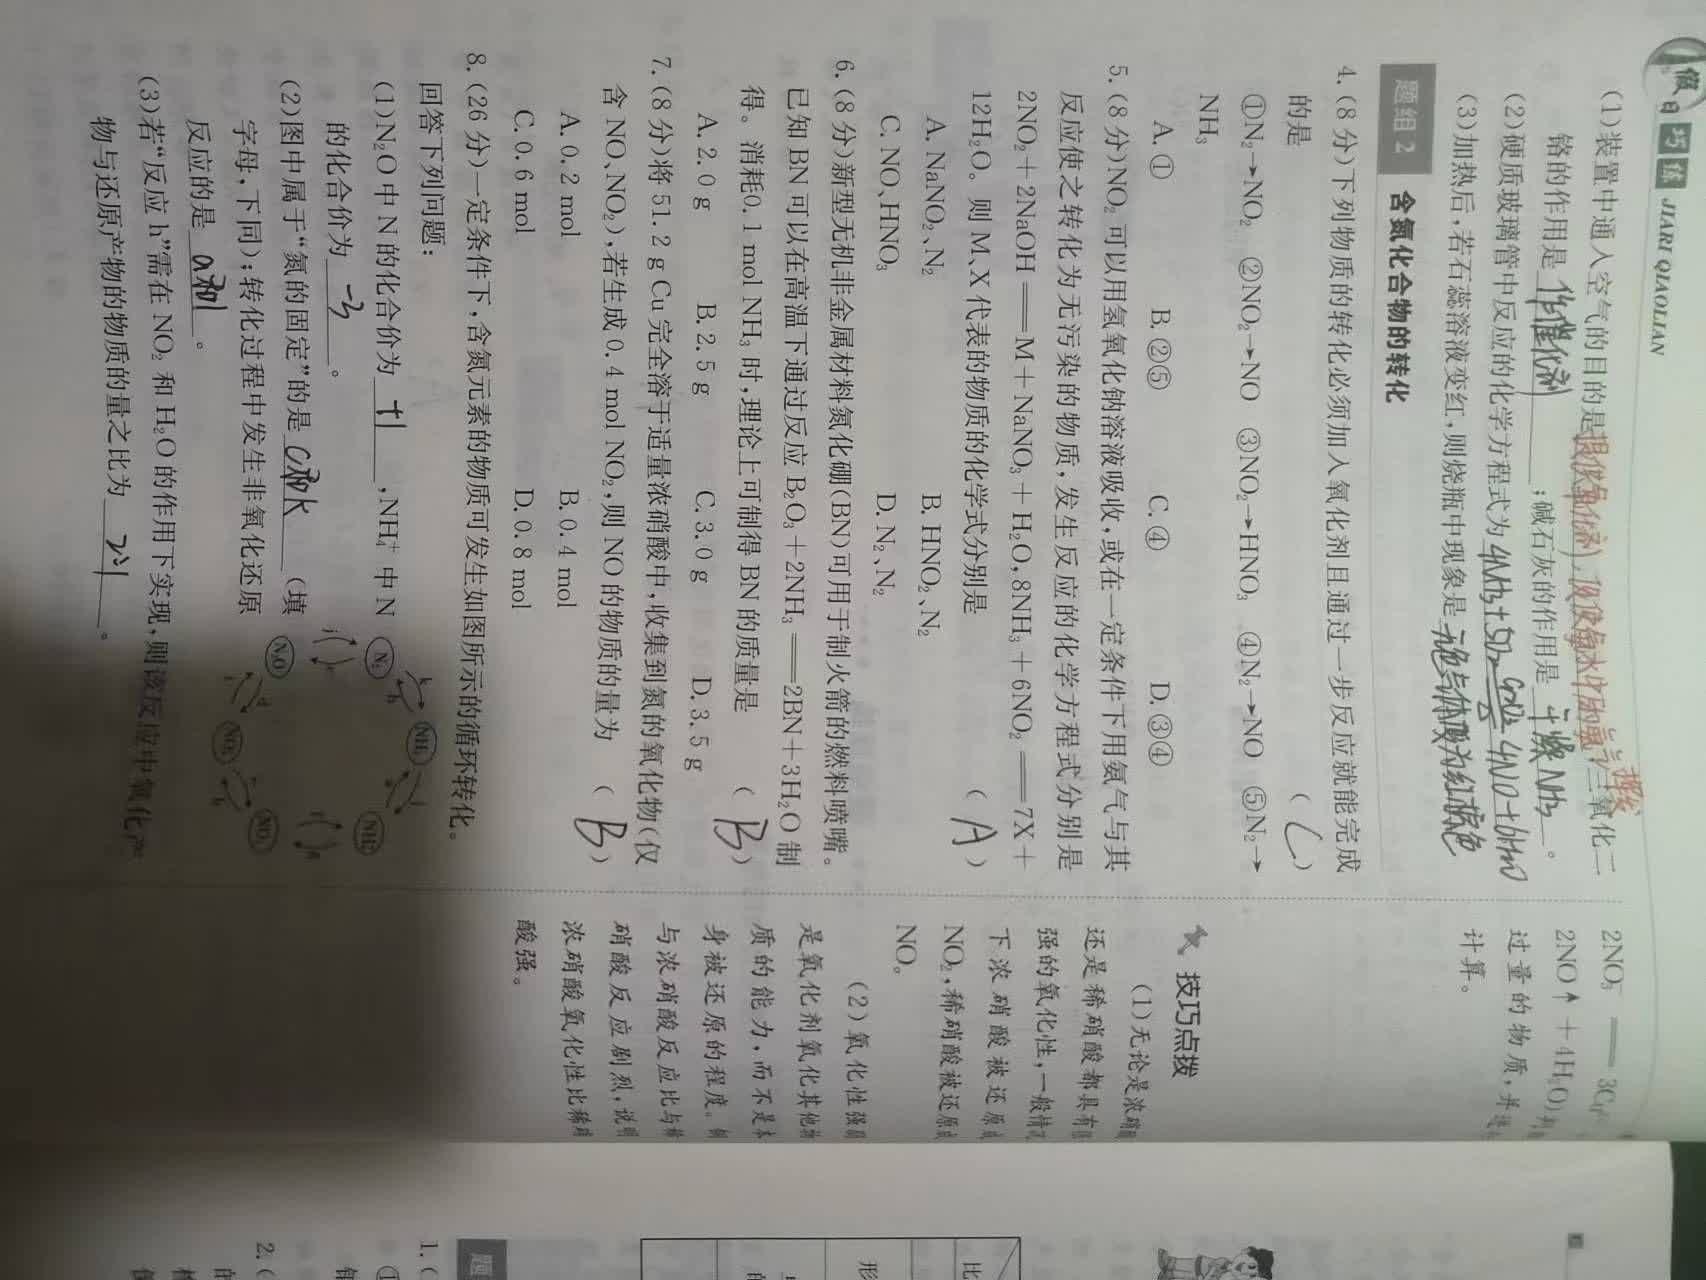 假日巧练 JIARI QIAOLIAN
(1)装置中通入空气的目的是提供氧(氧化剂),可使氨水中的氨气挥发;三氧化二
铬的作用是 作催化剂 ;碱石灰的作用是 干燥NH₃ 。
(2)硬质玻璃管中反应的化学方程式为
(3)加热后,若石蕊溶液变红,则烧瓶中现象是 无色气体变为红棕色
题组2 含氮化合物的转化
4.(8分)下列物质的转化必须加入氧化剂且通过一步反应就能完成
的是 ( C )
①N₂→NO₂ ②NO₂→NO ③NO₂→HNO₃ ④N₂→NO ⑤N₂→
NH₃
A.① B.②⑤ C.④ D.③④
5.(8分)NO₂可以用氢氧化钠溶液吸收,或在一定条件下用氨气与其
反应使之转化为无污染的物质,发生反应的化学方程式分别是
2NO₂+2NaOH══M+NaNO₃+H₂O,8NH₃+6NO₂══7X+
12H₂O。则M、X代表的物质的化学式分别是 ( A )
A. NaNO₂、N₂ B. HNO₂、N₂
C. NO、HNO₃ D. N₂、N₂
6.(8分)新型无机非金属材料氮化硼(BN)可用于制火箭的燃料喷嘴。
已知BN可以在高温下通过反应B₂O₃+2NH₃══2BN+3H₂O制
得。消耗0.1 mol NH₃时,理论上可制得BN的质量是 ( B )
A. 2.0 g B. 2.5 g C. 3.0 g D. 3.5 g
7.(8分)将51.2 g Cu完全溶于适量浓硝酸中,收集到氮的氧化物(仅
含NO、NO₂),若生成0.4 mol NO₂,则NO的物质的量为 ( B )
A. 0.2 mol B. 0.4 mol
C. 0.6 mol D. 0.8 mol
8.(26分)一定条件下,含氮元素的物质可发生如图所示的循环转化。
回答下列问题:
(1)N₂O中N的化合价为 +1 ,NH₄⁺中N
的化合价为 -3 。
(2)图中属于“氮的固定”的是 c和k (填
字母,下同);转化过程中发生非氧化还原
反应的是 a和l 。
(3)若“反应h”需在NO₂和H₂O的作用下实现,则该反应中氧化产
物与还原产物的物质的量之比为 2:1 。
N₂
N₂O
2NO₃⁻══3Cu
2NO↑+4H₂O)
过量的物质,并
计算。
技巧点拨
(1)无论是浓硝酸
还是稀硝酸都具有
强的氧化性,一般情况
下浓硝酸被还原成
NO₂,稀硝酸被还原成
NO。
(2)氧化性强弱
是氧化剂氧化其他物
质的能力,而不是本
身被还原的程度。铜
与浓硝酸反应比与稀
硝酸反应剧烈,说明
浓硝酸氧化性比稀硝
酸强。
题
1.(
①
2.(
的
比
形